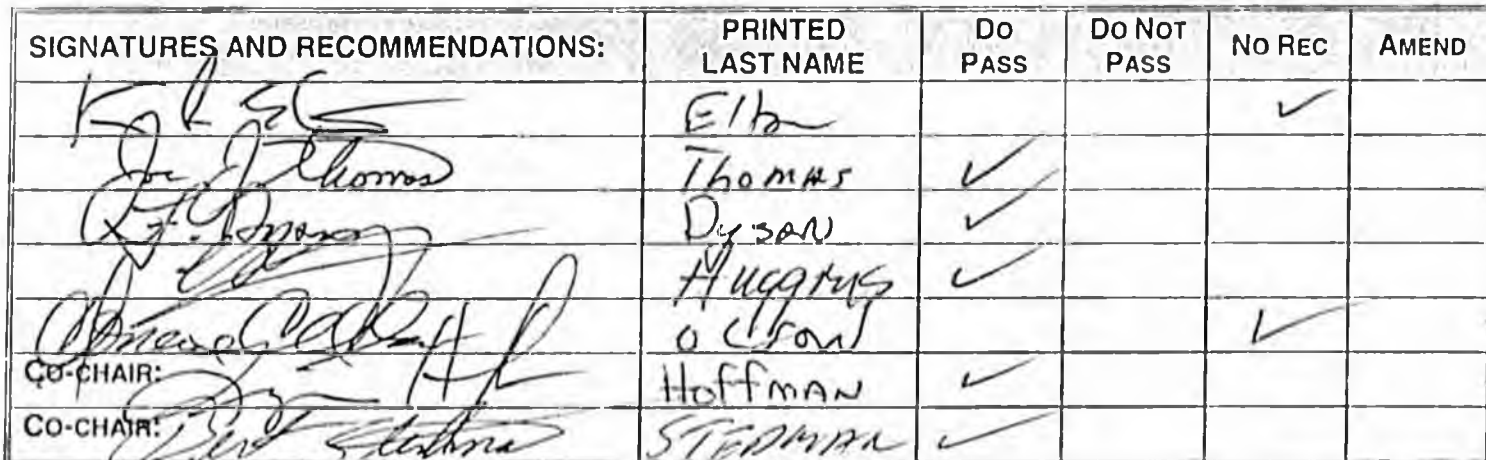 SIGNATURES AND RECOMMENDATIONS: PRINTED LAST NAME DO PASS DO NOT PASS NO REC AMEND
Elton ✓
Joe J. Thomas Thomas ✓
Dyson ✓
Huggins ✓
Olson ✓
CO-CHAIR: Hoffman ✓
CO-CHAIR: Bert Stedman STEDMAN ✓